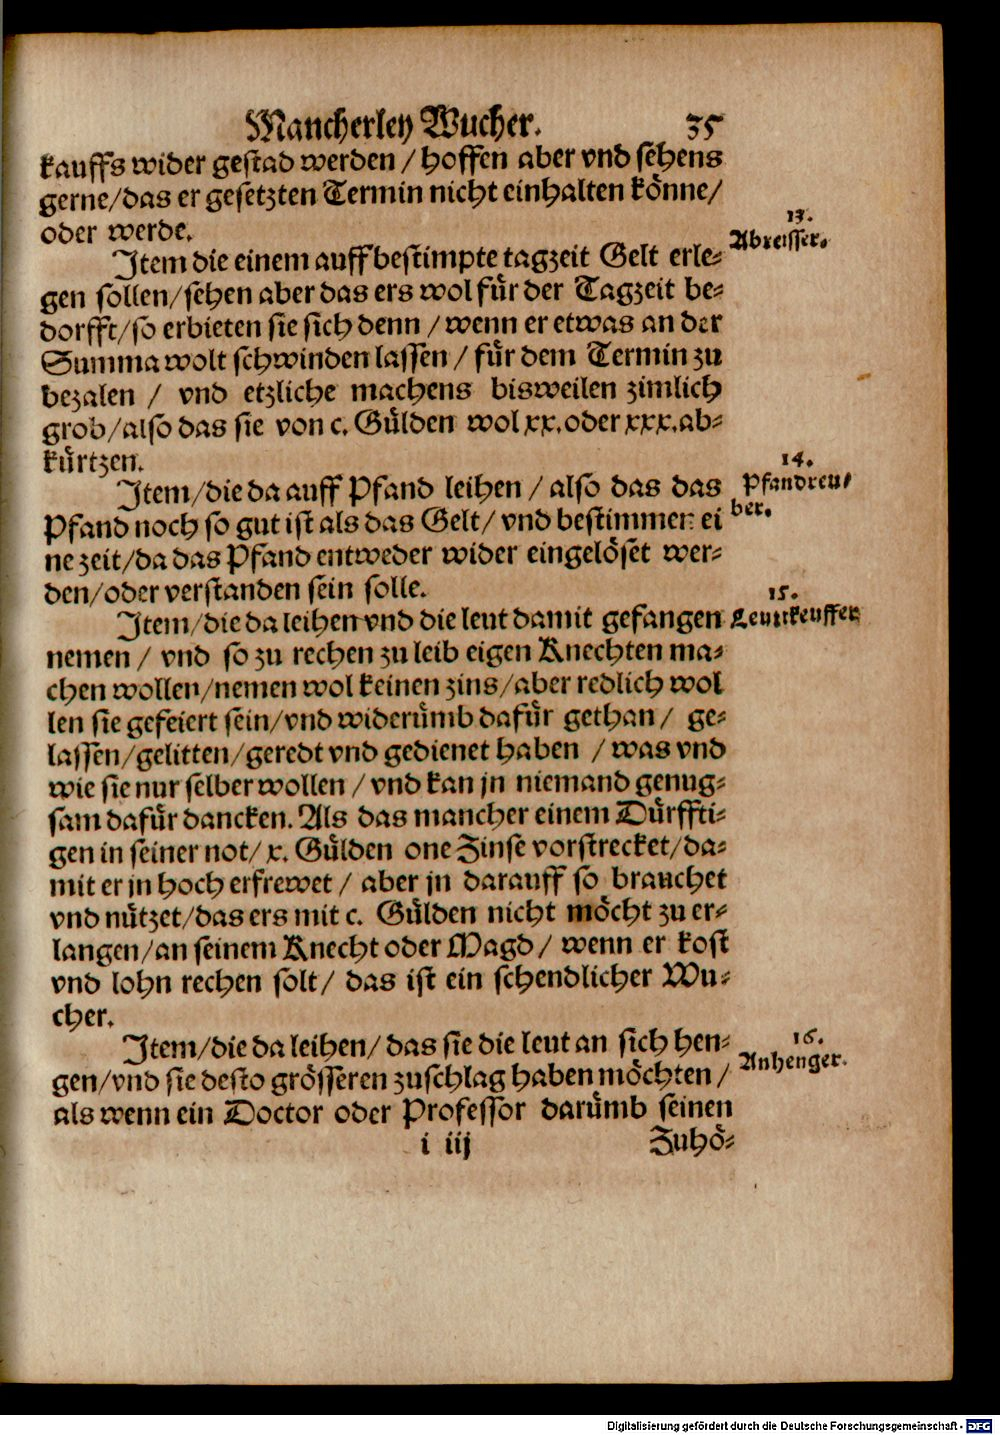 Mancherley Wucher. 35
kauffs wider gestad werden / hoffen aber vnd sehens
gerne/das er gesetzten Termin nicht einhalten könne/
oder werde.
13.
Abreisser.
Item die einem auff bestimpte tagzeit Gelt erle⸗
gen sollen/sehen aber das ers wol für der Tagzeit be⸗
dorfft/so erbieten sie sich denn / wenn er etwas an der
Summa wolt schwinden lassen / für dem Termin zu
bezalen / vnd etzliche machens bisweilen zimlich
grob/also das sie von c. Gülden wol xx. oder xxx. ab⸗
kürtzen.
14.
Pfandreu⸗
ber.
Item/die da auff Pfand leihen / also das das
Pfand noch so gut ist als das Gelt/ vnd bestimmen ei
ne zeit/da das Pfand entweder wider eingelöset wer⸗
den/oder verstanden sein solle.
15.
Leuttkeuffer.
Item/die da leihen vnd die leut damit gefangen
nemen / vnd so zu rechen zu leib eigen Knechten ma⸗
chen wollen/nemen wol keinen zins/aber redlich wol
len sie gefeiert sein/vnd widerümb dafür gethan / ge⸗
lassen/gelitten/geredt vnd gedienet haben / was vnd
wie sie nur selber wollen / vnd kan jn niemand genug⸗
sam dafür dancken. Als das mancher einem Dürffti⸗
gen in seiner not/ x. Gülden one Zinse vorstrecket/da⸗
mit er jn hoch erfrewet / aber jn darauff so brauchet
vnd nützet/das ers mit c. Gülden nicht möcht zu er⸗
langen/an seinem Knecht oder Magd / wenn er kost
vnd lohn rechen solt/ das ist ein schendlicher Wu⸗
cher.
16.
Anhenger.
Item/die da leihen/ das sie die leut an sich hen⸗
gen/vnd sie desto grösseren zuschlag haben möchten /
als wenn ein Doctor oder Professor darümb seinen
i iij Zuhö⸗
Digitalisierung gefördert durch die Deutsche Forschungsgemeinschaft - DFG